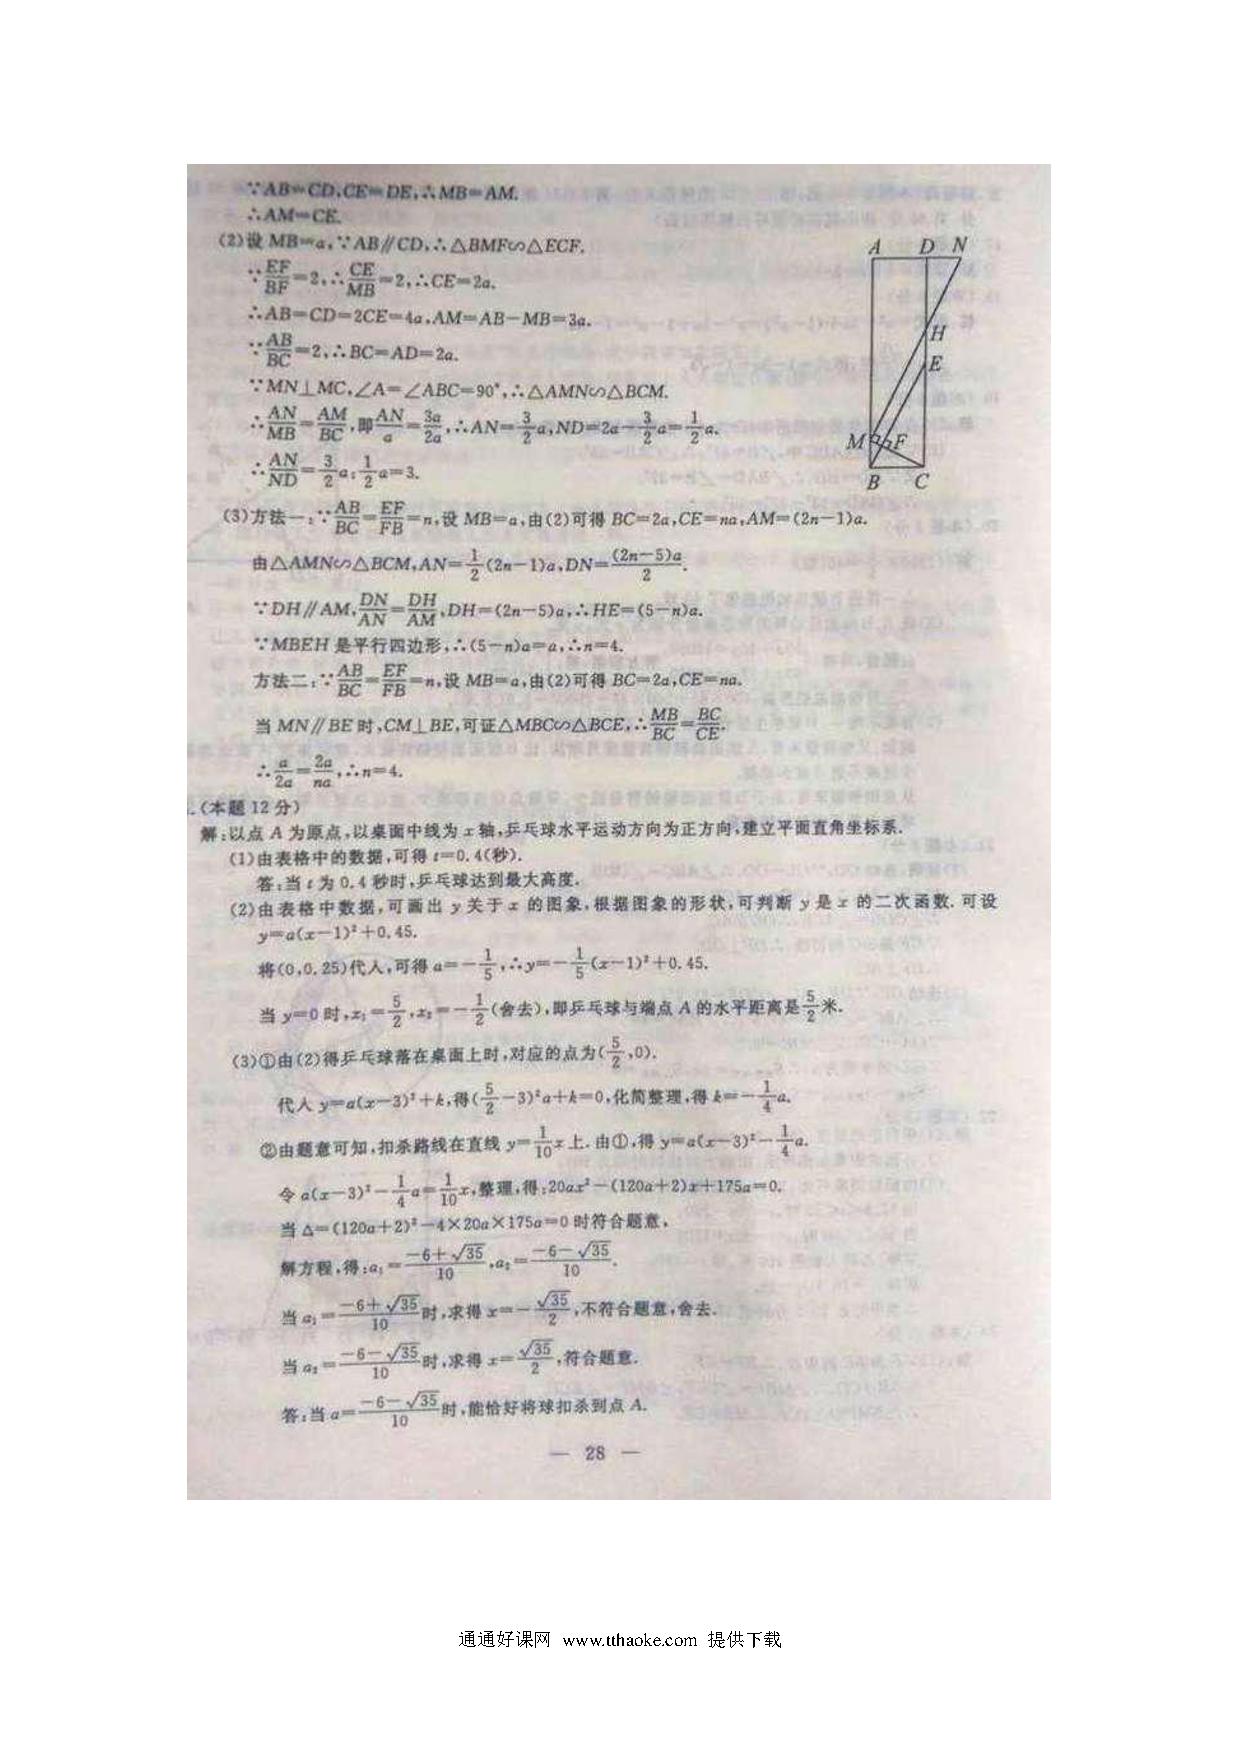 ∵AB=CD,CE=DE,∴MB=AM.
∴AM=CE.
(2)设 MB=a,∵AB∥CD,∴△BMF∽△ECF.
∵EF/BF=2,∴CE/MB=2,∴CE=2a.
∴AB=CD=2CE=4a,AM=AB-MB=3a.
∵AB/BC=2,∴BC=AD=2a.
∵MN⊥MC,∠A=∠ABC=90°,∴△AMN∽△BCM.
∴AN/MB=AM/BC,即AN/a=3a/2a,∴AN=3/2a,ND=2a-3/2a=1/2a.
∴AN/ND=3/2a:1/2a=3.
A D N
H
E
M F
B C
(3)方法一:∵AB/BC=EF/FB=n,设 MB=a,由(2)可得 BC=2a,CE=na,AM=(2n-1)a.
由△AMN∽△BCM,AN=1/2(2n-1)a,DN=(2n-5)a/2.
∵DH∥AM,DN/AN=DH/AM,DH=(2n-5)a,∴HE=(5-n)a.
∵MBEH 是平行四边形,∴(5-n)a=a,∴n=4.
方法二:∵AB/BC=EF/FB=n,设 MB=a,由(2)可得 BC=2a,CE=na.
当 MN∥BE 时,CM⊥BE,可证△MBC∽△BCE,∴MB/BC=BC/CE.
∴a/2a=2a/na,∴n=4.
.(本题 12 分)
解:以点 A 为原点,以桌面中线为 x 轴,乒乓球水平运动方向为正方向,建立平面直角坐标系.
(1)由表格中的数据,可得 t=0.4(秒).
答:当 t 为 0.4 秒时,乒乓球达到最大高度.
(2)由表格中数据,可画出 y 关于 x 的图象,根据图象的形状,可判断 y 是 x 的二次函数. 可设
y=a(x-1)²+0.45.
将(0,0.25)代入,可得 a=-1/5,∴y=-1/5(x-1)²+0.45.
当 y=0 时,x₁=5/2,x₂=-1/2(舍去),即乒乓球与端点 A 的水平距离是5/2米.
(3)①由(2)得乒乓球落在桌面上时,对应的点为(5/2,0).
代入 y=a(x-3)²+k,得(5/2-3)²a+k=0,化简整理,得 k=-1/4a.
②由题意可知,扣杀路线在直线 y=1/10x 上. 由①,得 y=a(x-3)²-1/4a.
令 a(x-3)²-1/4a=1/10x,整理,得:20ax²-(120a+2)x+175a=0.
当 △=(120a+2)²-4×20a×175a=0 时符合题意,
解方程,得:a₁=-6+√35/10,a₂=-6-√35/10.
当 a₁=-6+√35/10时,求得 x=-√35/2,不符合题意,舍去.
当 a₂=-6-√35/10时,求得 x=√35/2,符合题意.
答:当 a=-6-√35/10时,能恰好将球扣杀到点 A.
— 28 —
通通好课网 www.tthaoke.com 提供下载